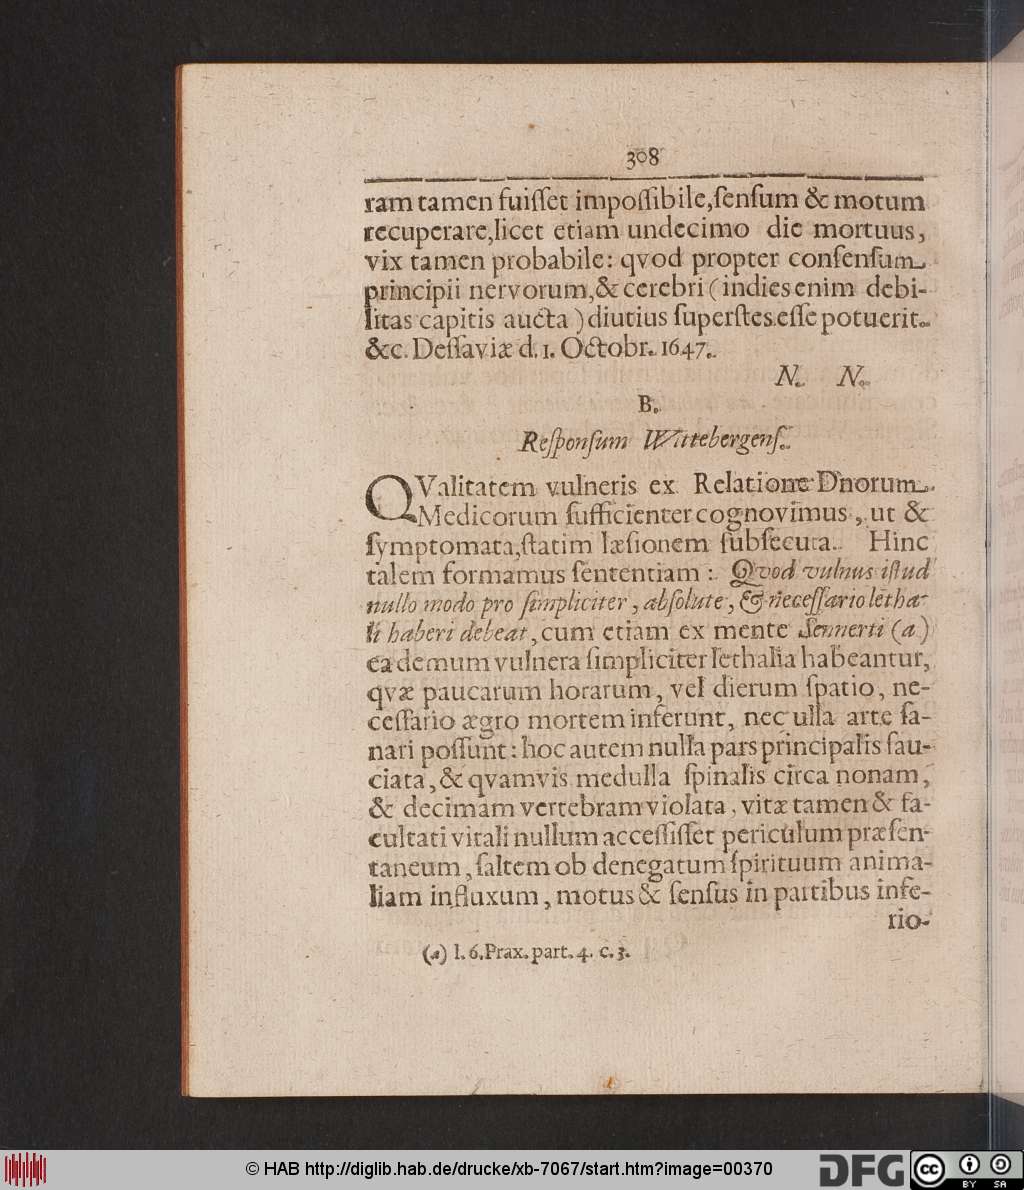 308
ram tamen fuiſſet impoſſibile,ſenſum & motum
recuperare,licet etiam undecimo die mortuus,
vix tamen probabile: qvod propter conſenſum
principii nervorum,& cerebri (indies enim debi-
litas capitis aucta) diutius ſuperſtes eſſe potuerit.
&c. Deſſaviæ d. 1. Octobr. 1647.
N. N.
B.
Reſponſum Wittebergenſ.
QValitatem vulneris ex Relatione Dnorum
Medicorum ſufficienter cognovimus, ut &
ſymptomata,ſtatim læſionem ſubſecuta. Hinc
talem formamus ſententiam: Qvod vulnus iſtud
nullo modo pro ſimpliciter, abſolute, & neceſſario letha-
li haberi debeat, cum etiam ex mente Sennerti (a)
ea demum vulnera ſimpliciter lethalia habeantur,
qvæ paucarum horarum, vel dierum ſpatio, ne-
ceſſario ægro mortem inferunt, nec ulla arte ſa-
nari poſſunt: hoc autem nulla pars principalis ſau-
ciata, & qvamvis medulla ſpinalis circa nonam,
& decimam vertebram violata, vitæ tamen & fa-
cultati vitali nullum acceſſiſſet periculum præſen-
taneum, ſaltem ob denegatum ſpirituum anima-
lium influxum, motus & ſenſus in partibus infe-
rio-
(a) l. 6. Prax. part. 4. c. 3.
© HAB http://diglib.hab.de/drucke/xb-7067/start.htm?image=00370
DFG
cc
BY SA